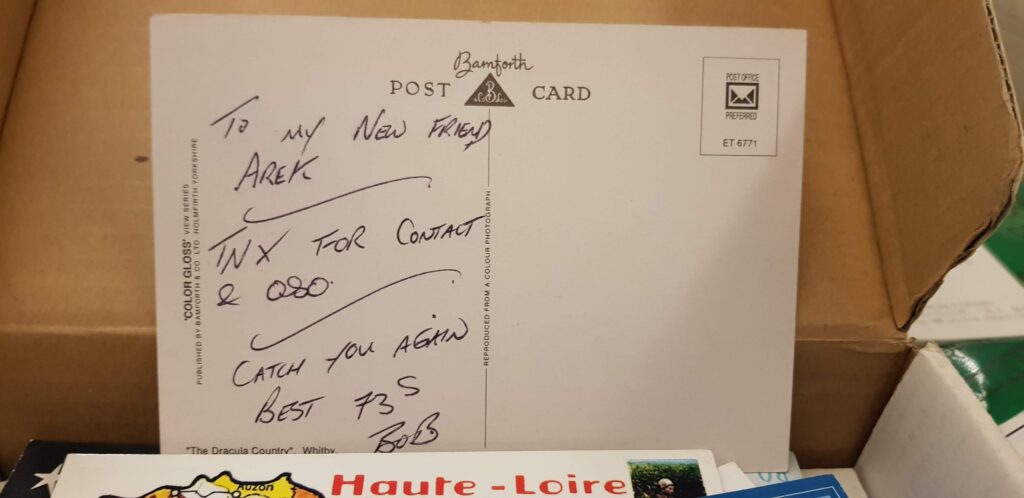 Bamforth
POST CARD
POST OFFICE
PREFERRED
ET 6771
TO MY NEW FRIEND
AREK
TNX FOR CONTACT
& QSO.
CATCH YOU AGAIN
BEST 73S
BOB
'COLOR GLOSS' VIEW SERIES
PUBLISHED BY BAMFORTH & CO. LTD. HOLMFIRTH YORKSHIRE
REPRODUCED FROM A COLOUR PHOTOGRAPH
"The Dracula Country", Whitby.
Haute-Loire
AUZON